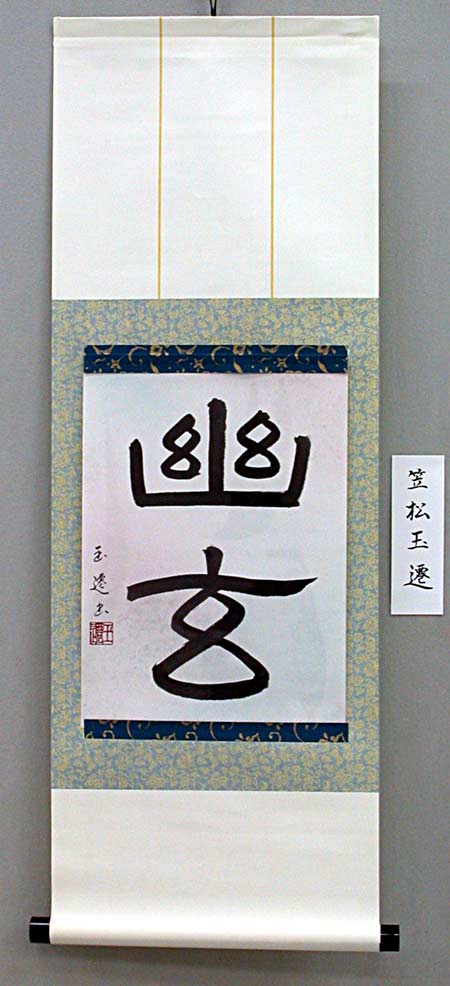 幽玄
玉遷书
笠松玉遷